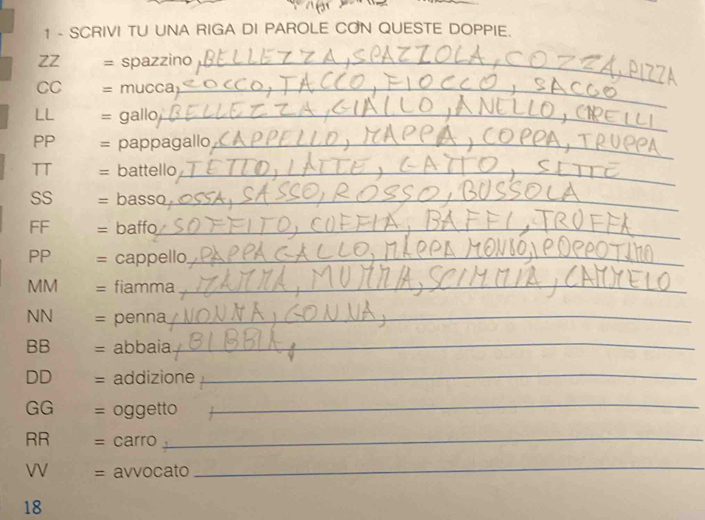 1 - SCRIVI TU UNA RIGA DI PAROLE CON QUESTE DOPPIE.
ZZ = spazzino, BELLEZZA, SPAZZOLA, COZZA, PIZZA
CC = mucca, COCCO, TACCO, FIOCCO, SACCO
LL = gallo, BELLEZZA, GIALLO, ANELLO, CAPELLI
PP = pappagallo, CAPPELLO, MAPPA, COPPA, TRUPPA
TT = battello, TETTO, LATTE, GATTO, SETTE
SS = basso, OSSA, SASSO, ROSSO, BUSSOLA
FF = baffo, SOFFITO, CUFFIA, BAFFI, TRUFFA
PP = cappello, PAPPAGALLO, MAPPA POPPOTAMO
MM = fiamma, MAMMA, MUMMIA, SCIMMIA, CAMMELO
NN = penna, NONNA, GONNA,
BB = abbaia, BIBBIA,
DD = addizione,
GG = oggetto
RR = carro
VV = avvocato
18